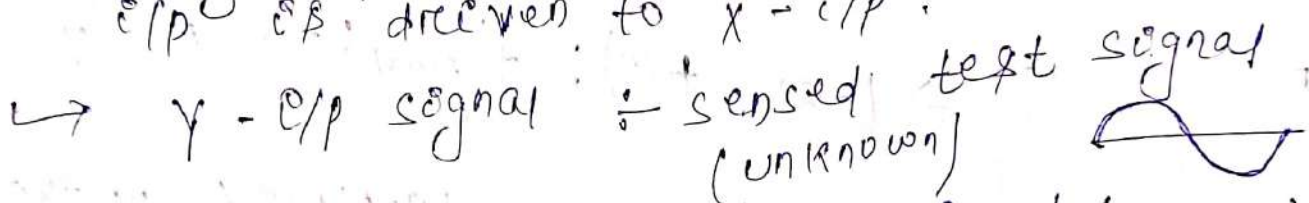 i/p is driven to X - i/p.
↳ Y - i/p signal ÷ sensed test signal
(unknown)